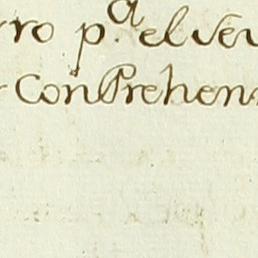 rro p.ª el ser
Conprehen